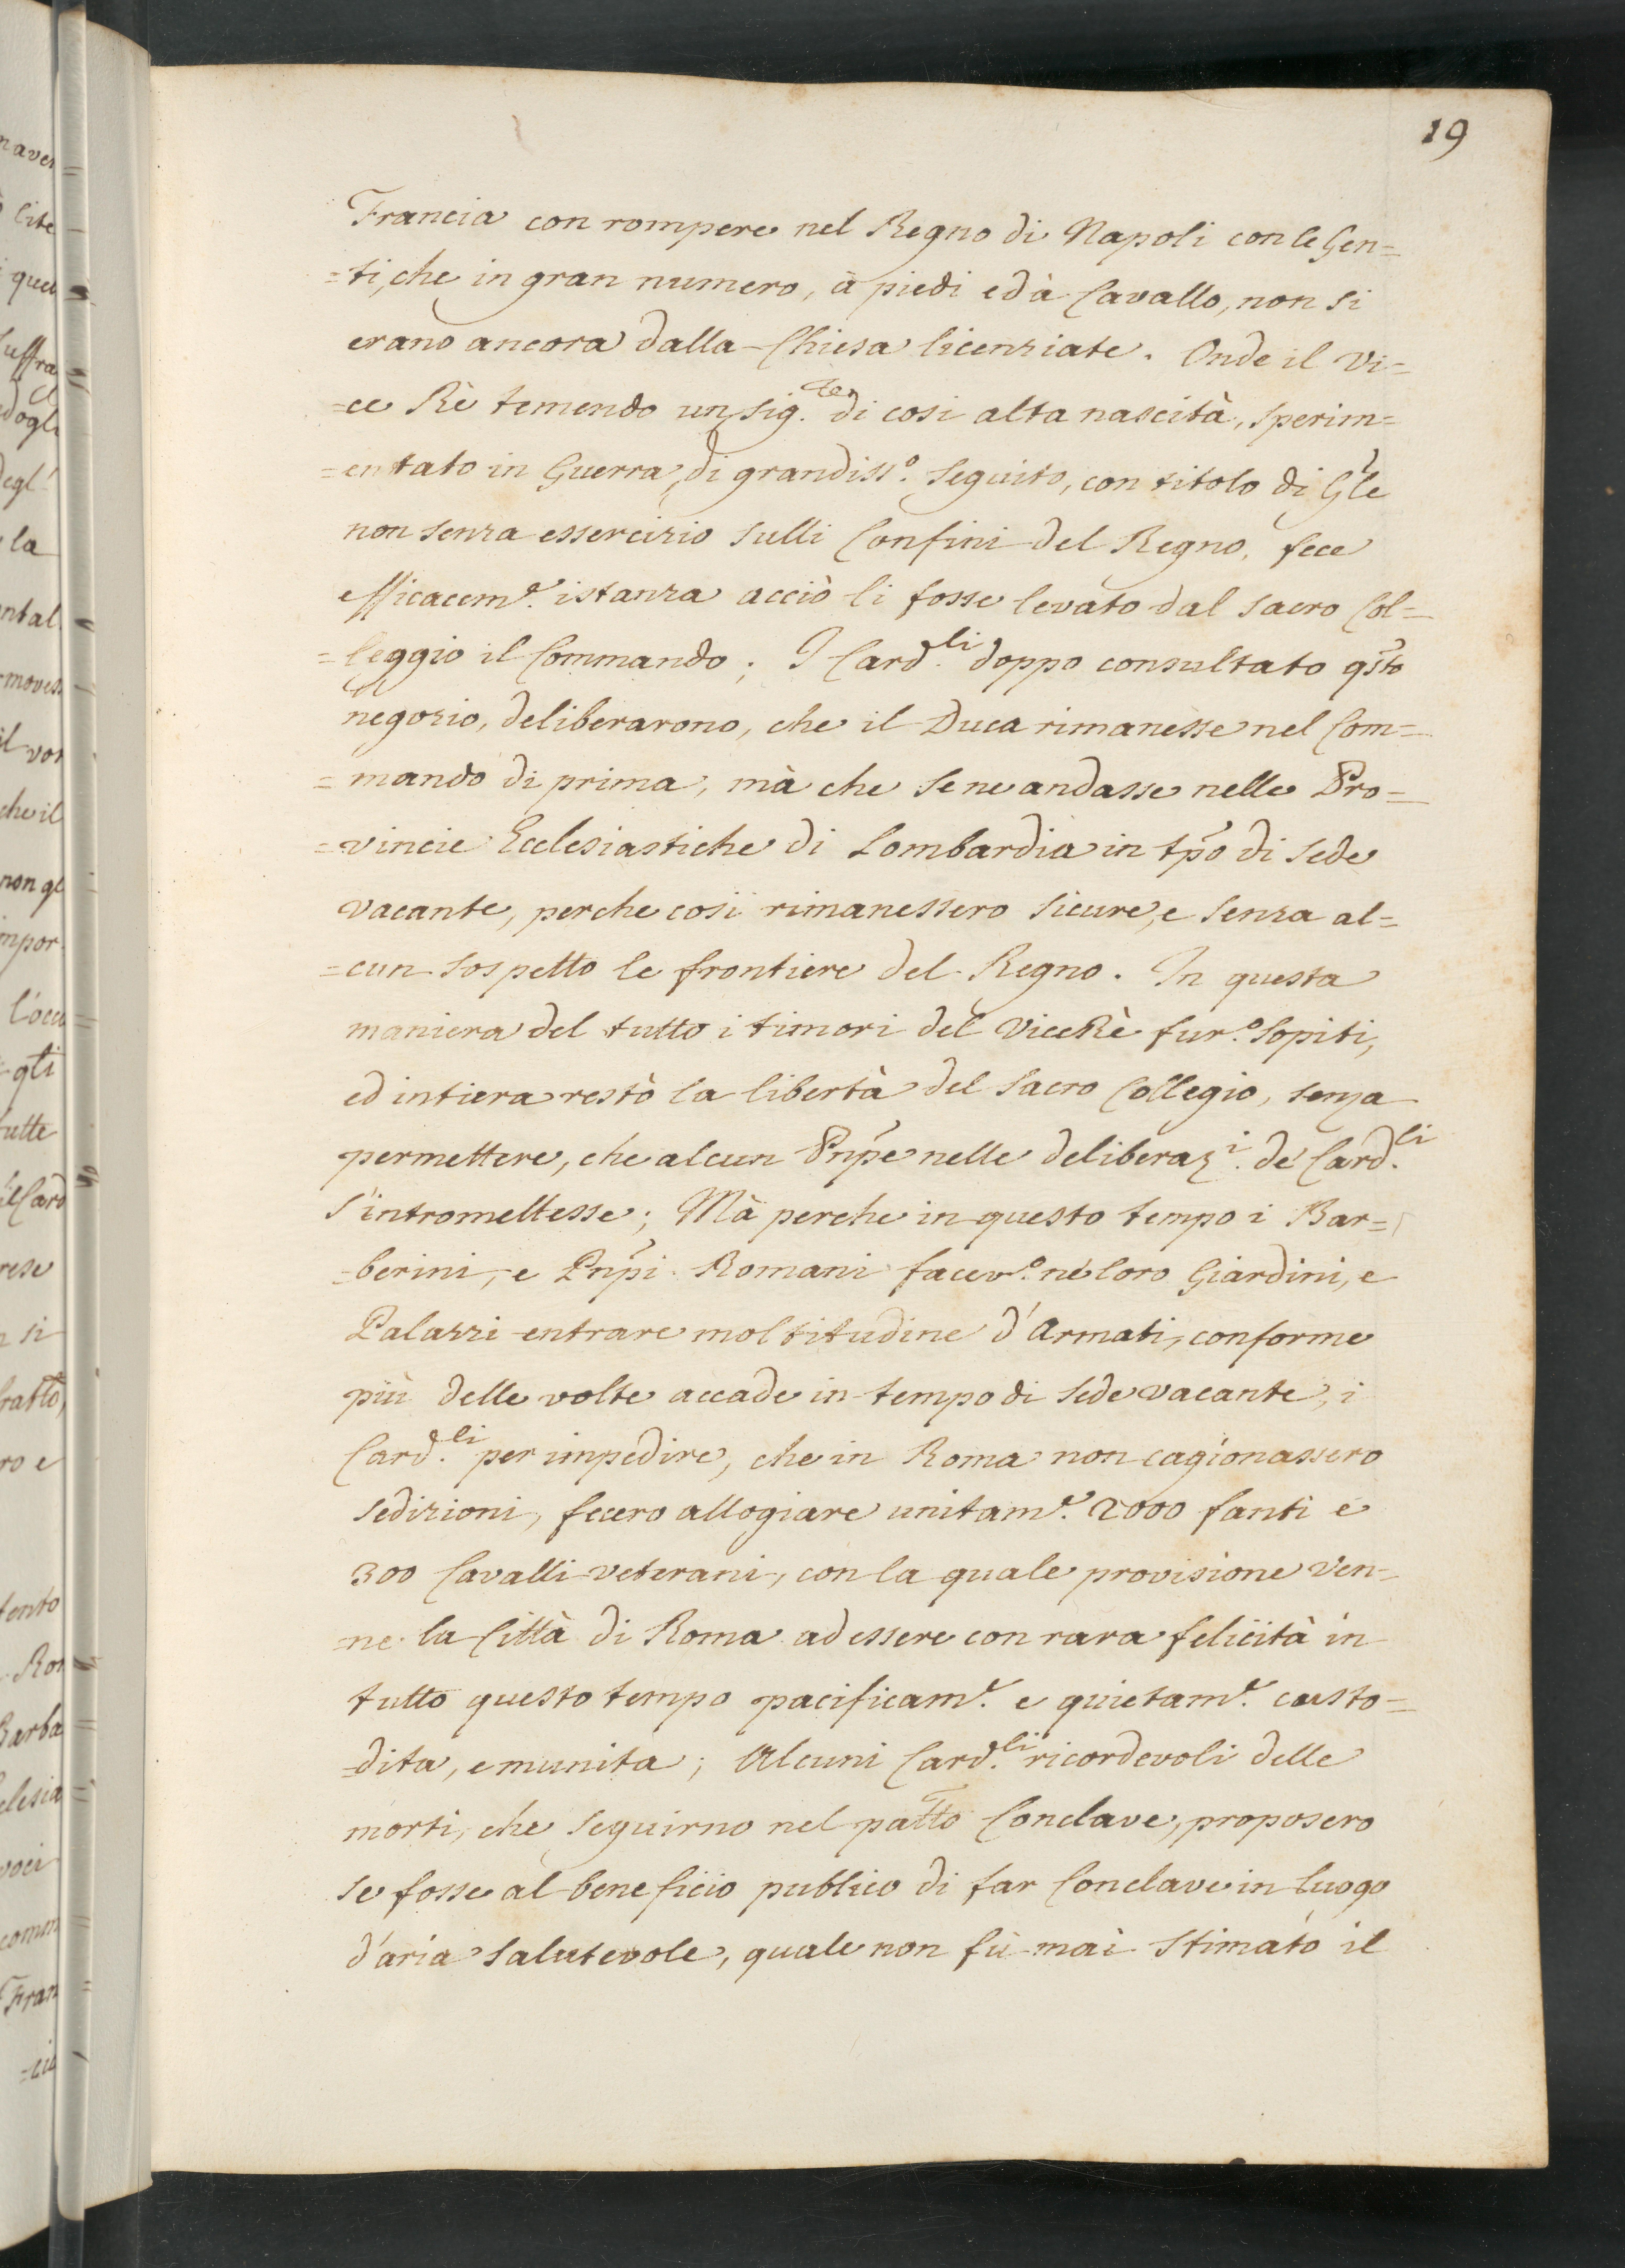 19
Francia con rompere nel Regno di Napoli con le Gen=
=ti, che in gran numero, à piedi ed à Cavallo, non si
erano ancora dalla Chiesa licenziate. Onde il Vi=
=ce Rè temendo un sig.re di cosi alta nascità, sperim=
=entato in Guerra, di grandiss.o seguito, con titolo di Gle
non senza essercizio sulli Confini del Regno, fece
efficacem.e istanza acciò li fosse levato dal sacro Col=
=leggio il Commando; I Card.li doppo consultato qsto
negozio, deliberarono, che il Duca rimanesse nel Com=
=mando di prima, mà che se ne andasse nelle Pro=
=vincie Ecclesiastiche di Lombardia in tpo di sede
vacante, perche così rimanessero sicure, e senza al=
=cun sospetto le frontiere del Regno. In questa
maniera del tutto i timori del ViceRè fur.o sopiti,
ed intiera restò la libertà del sacro Collegio, senza
permettere, che alcun Pnpe nelle deliberaz.i de' Card.li
s'intromettesse; Mà perche in questo tempo i Bar=
=berini, e Pnpi Romani facev.o né loro Giardini, e
Palazzi entrare moltitudine d'Armati, conforme
più delle volte accade in tempo di sede vacante, i
Card.li per impedire, che in Roma non cagionassero
sedizioni, fecero allogiare unitam.e 2000 fanti e
300 Cavalli veterani, con la quale provisione ven=
=ne la Città di Roma ad essere con rara felicità in
tutto questo tempo pacificam.e e quietam.e custo=
=dita, e munita; Alcuni Card.li ricordevoli delle
morti, che seguirno nel patto Conclave, proposero
se fosse al beneficio publico di far Conclave in luogo
d'aria salutevole, quale non fù mai stimato il